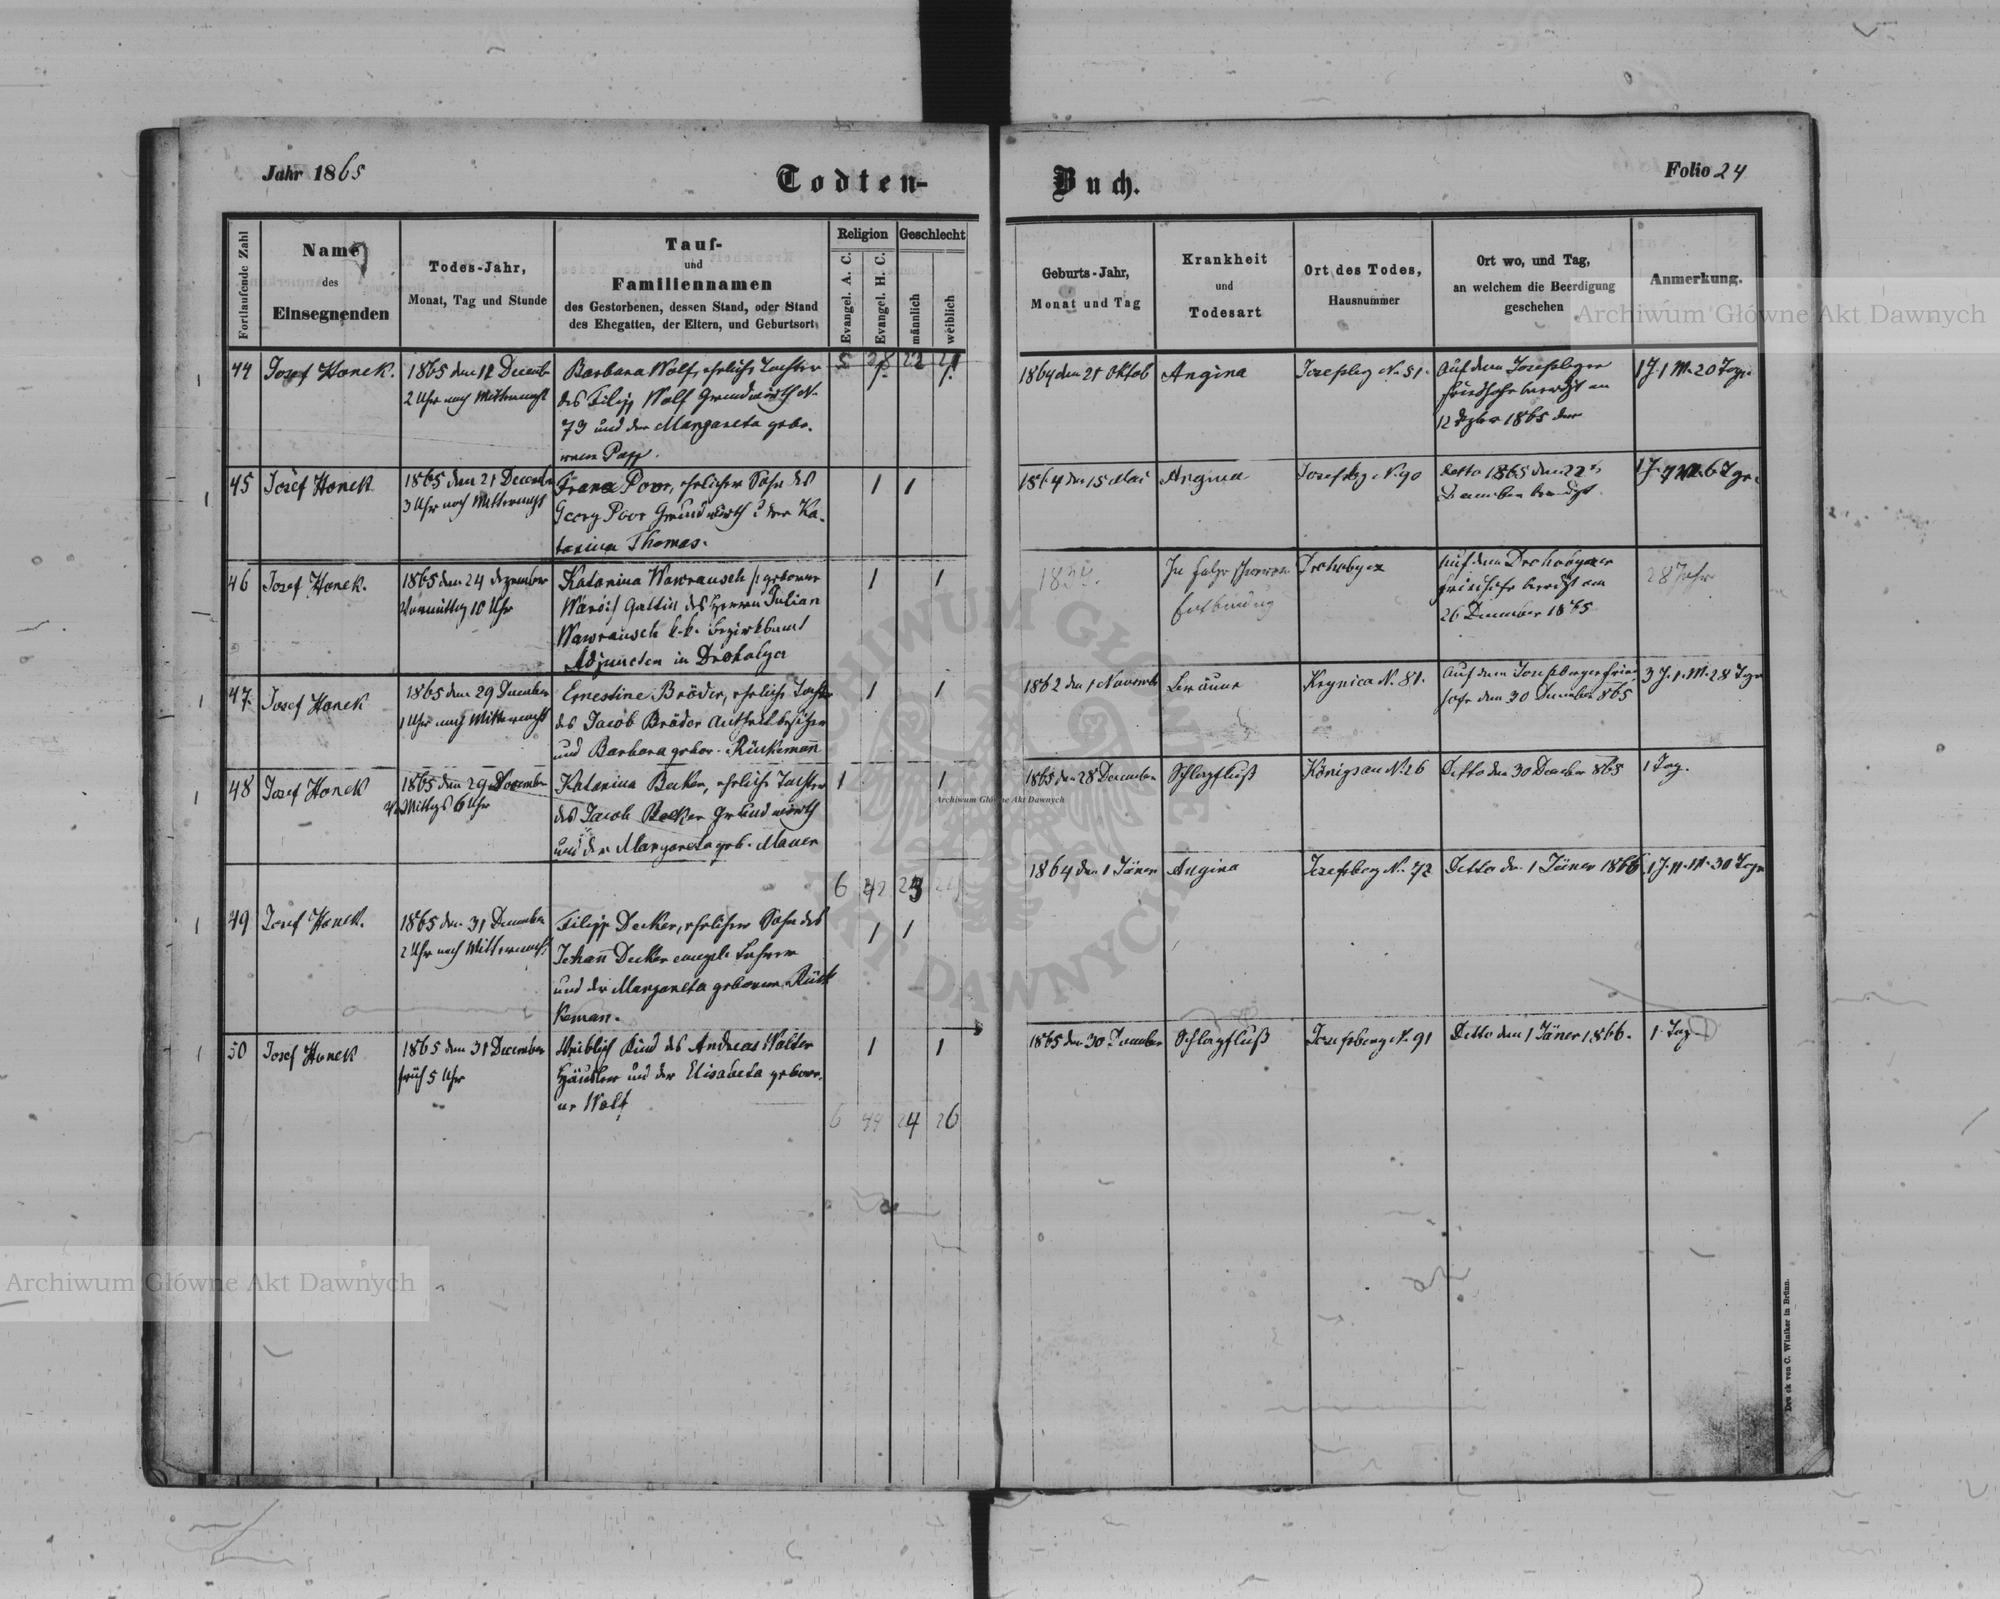 Jahr 1865
Todten-
Buch.
Folio 24
Fortlaufende Zahl
Name
des
Einsegnenden
Todes-Jahr,
Monat, Tag und Stunde
Tauf-
und
Familiennamen
des Gestorbenen, dessen Stand, oder Stand
des Ehegatten, der Eltern, und Geburtsort
Religion
Evangel. A. C.
Evangel. H. C.
Geschlecht
männlich
weiblich
Geburts-Jahr,
Monat und Tag
Krankheit
und
Todesart
Ort des Todes,
Hausnummer
Ort wo, und Tag,
an welchem die Beerdigung
geschehen
Anmerkung.
Archiwum Główne Akt Dawnych
5 38 22 21
44
Josef Honek.
1865 den 12 Decemb
2 Uhr nach Mitternacht
Barbara Wolf, ehrliche Tochter
des Filipp Wolf Grundwirth N.
73 und der Margareta gebo-
renen Papp.
1 1
1864 den 21 Oktob
Angina
Josefsbg N. 51.
Auf dem Josefsberger
Friedhofe beerdigt am
12 1865
1 J. 1 M. 20 Tage
45
Josef Honek
1865 den 21 Decemb
3 Uhr nach Mitternacht
Franz Poor, ehrlicher Sohn des
Georg Poor Grundwirth u der Ka-
tarina Thomas.
1 1
1864 den 15 Mai
Angina
Josefsbg N. 90
detto 1865 den 22t
Dezember beerdigt.
1 J. 7 M. 6 Tge.
46
Josef Honek.
1865 den 24 Dezember
Vormittag 10 Uhr
Katarina Wawrausch geborene
Gattin des Herrn Julian
Wawrausch k.k. Bezirksamt
Adjuncten in Drohobycz
1 1
1837.
In Folge schwerer
Entbindung
Drohobycz
Auf dem Drohobyczer
Friedhofe beerdigt am
26 Dezember 1865
28 Jahre
47.
Josef Honek
1865 den 29 Dezember
1 Uhr nach Mitternacht
Ernestine Bröder, ehrliche Tochter
des Jacob Bröder Antheilbesitzer
und Barbara gebor. Rückemañ
1 1
1862 den 1 November
Breäune
Krynica N. 81.
Auf dem Josefsberger Fried-
hofe den 30 Dezember 1865
3 J. 1. M. 28 Tage
48
Josef Honek
1865 den 29 Dezember
Mittags 6 Uhr
Katarina Becker, ehrliche Tochter
des Jacob Becker Grundwirth
und der Margareta geb. Mauer
1 1
1865 den 28 Dezember
Schlagfluß
Königsau N. 26
Detto den 30 December 865
1 Tag.
Archiwum Główne Akt Dawnych
6 42 23
49
Josef Honek.
1865 den 31 Dezember
2 Uhr nach Mitternacht
Filipp Decker, ehrlicher Sohn des
Johañ Decker evangel. Lehrer
und der Margareta geborene Rück
keman.
1 1
1864 den 1 Jäner
Angina
Josefsberg N. 72
Detto den 1 Jäner 1866
1 J. 11. M. 30 Tage
50
Josef Honek
1865 den 31 December
früh 5 Uhr
Weiblich Kind des Andreas Walter
Häusler und der Elisabeta gebore-
ne Wolf
1 1
1865 den 30 Dezember
Schlagfluß
Josefsberg N. 91
Detto den 1 Jäner 1866.
1 Tag
6 44 24 26
Archiwum Główne Akt Dawnych
Druck von C. Winiker in Brünn.
ARCHIWUM GŁÓWNE AKT DAWNYCH